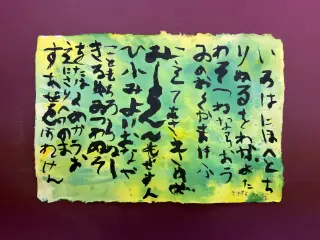 いろはにほへとち
りぬるをわかよた
れそつねならむう
ゐのおくやまけふ
こえてあさきゆめ
みしゑひもせすん
ひふみよいむなや
こともちろらねし
きるゆゐつわぬそ
をたはくめかうお
えにさりへてのま
すあせゑほれけん